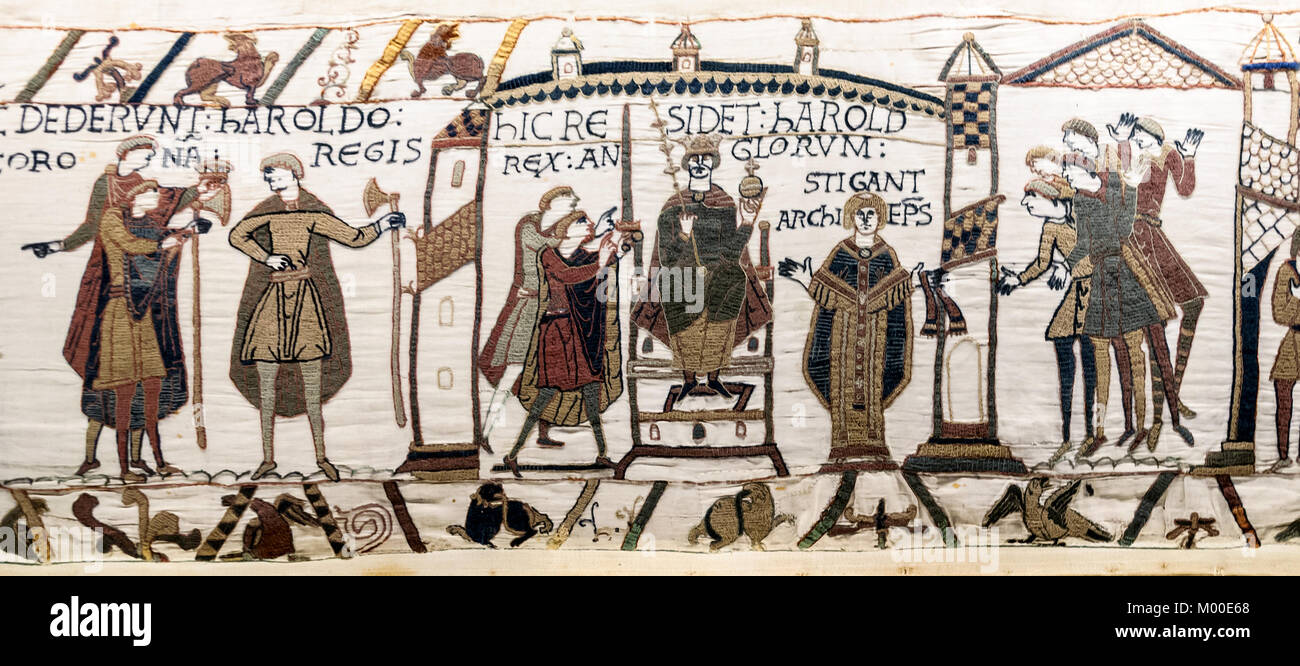 DEDERVNT: hAROLDO:
CORO NA: REGIS
hIC RE SIDET: hAROLD
REX: AN GLORVM:
STIGANT
ARChI EPS
alamy
alamy
Image ID: M00E68
www.alamy.com